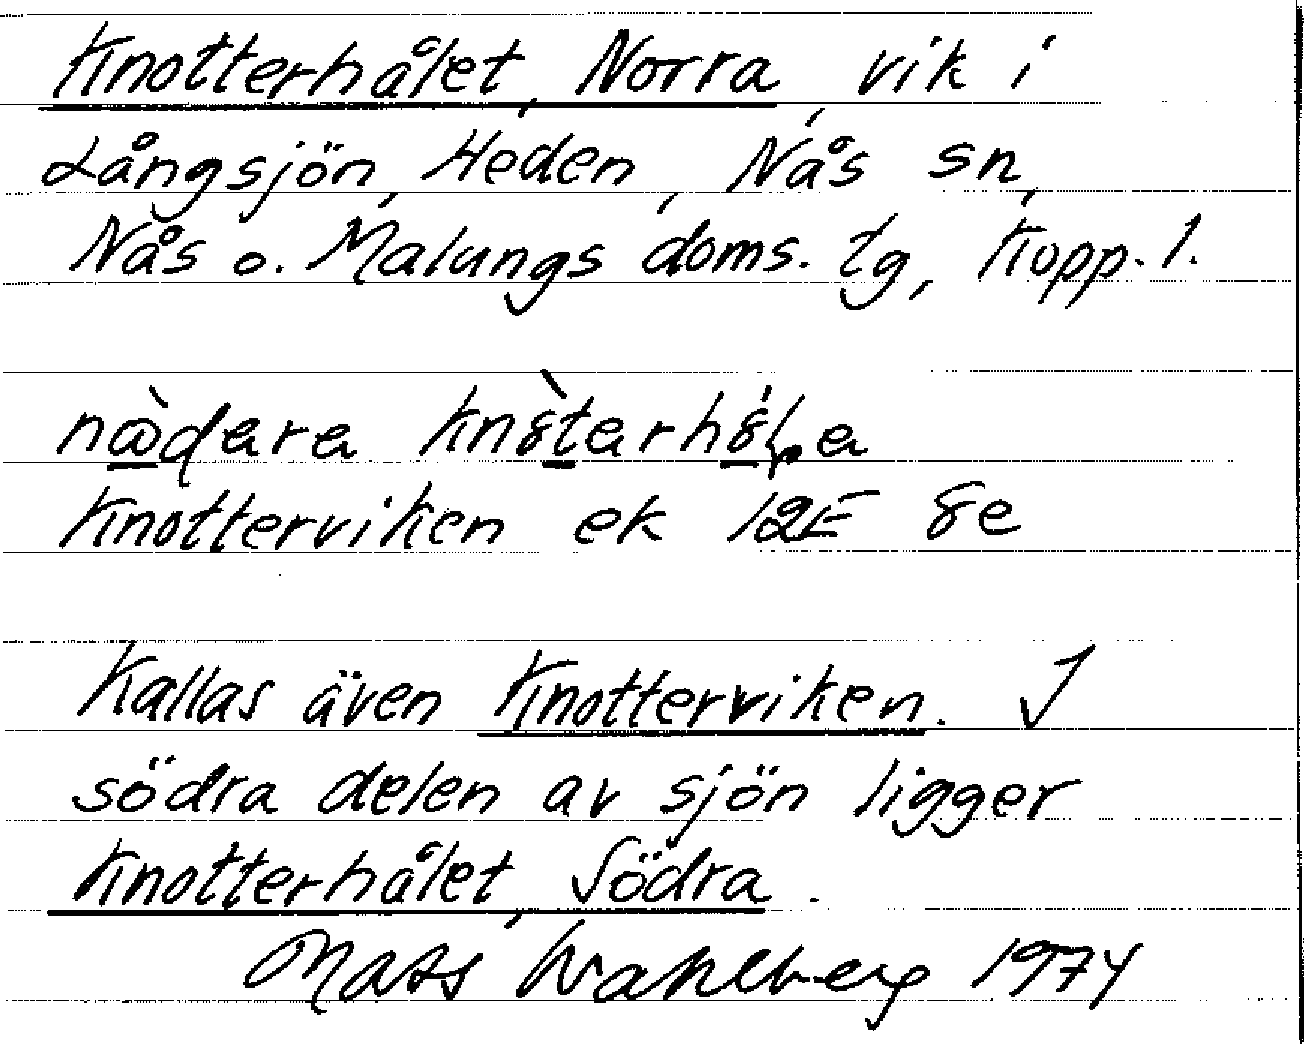 Knotterhålet, Norra, vik i
Långsjön, Heden, Nås sn,
Nås o. Malungs doms. tg, Kopp. l.
Knotterviken ek 12E 8e
Kallas även Knotterviken. I
södra delen av sjön ligger
Knotterhålet, Södra.
Mats Wahlberg 1974